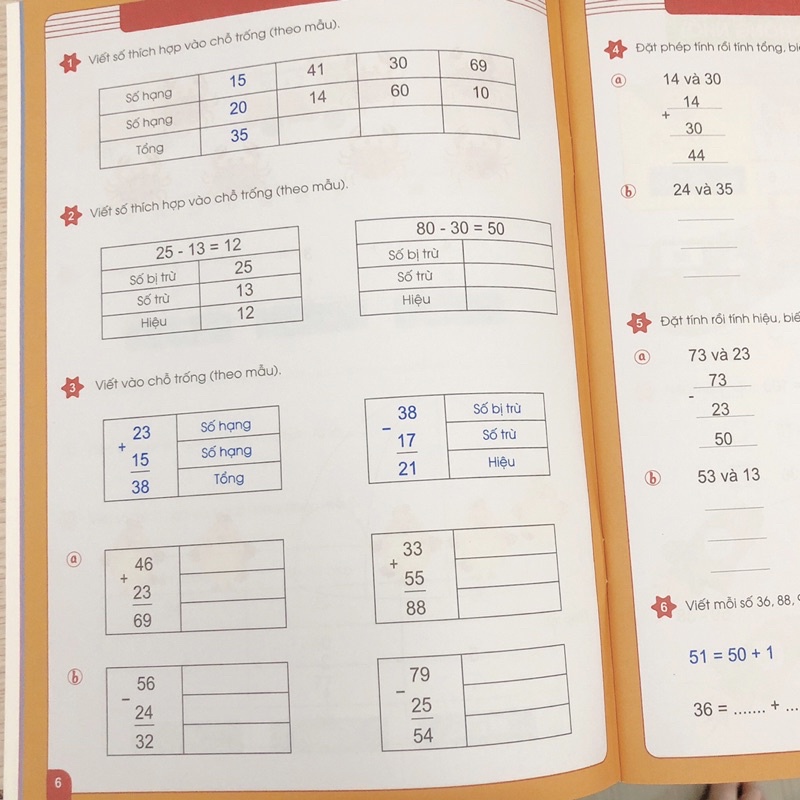 1 Viết số thích hợp vào chỗ trống (theo mẫu).
Số hạng 15 41 30 69
Số hạng 20 14 60 10
Tổng 35
2 Viết số thích hợp vào chỗ trống (theo mẫu).
25 - 13 = 12
Số bị trừ 25
Số trừ 13
Hiệu 12
80 - 30 = 50
Số bị trừ
Số trừ
Hiệu
3 Viết vào chỗ trống (theo mẫu).
23 Số hạng
+
15 Số hạng
38 Tổng
38 Số bị trừ
-
17 Số trừ
21 Hiệu
a
46
+
23
69
33
+
55
88
b
56
-
24
32
79
-
25
54
6
4 Đặt phép tính rồi tính tổng, bi
a 14 và 30
14
+
30
44
b 24 và 35
5 Đặt tính rồi tính hiệu, biế
a 73 và 23
73
-
23
50
b 53 và 13
6 Viết mỗi số 36, 88,
51 = 50 + 1
36 = ....... + ...